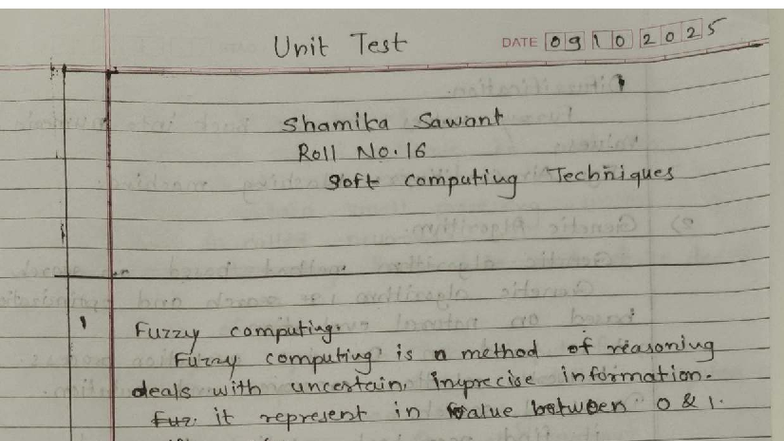 Unit Test
DATE 09 10 2025
Shamika Sawant
Roll No. 16
Soft Computing Techniques
1 Fuzzy computing.
Fuzzy computing is a method of reasoning
deals with uncertain, imprecise information.
Fuz. it represent in value between 0 & 1.